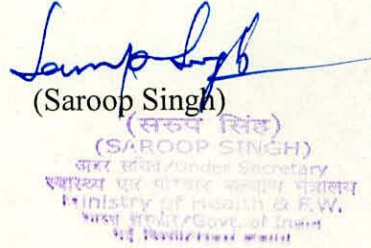 (Saroop Singh)
(सरुप सिंह)
(SAROOP SINGH)
अवर सचिव/Under Secretary
स्वास्थ्य एवं परिवार कल्याण मंत्रालय
Ministry of Health & F.W.
भारत सरकार/Govt. of India
नई दिल्ली